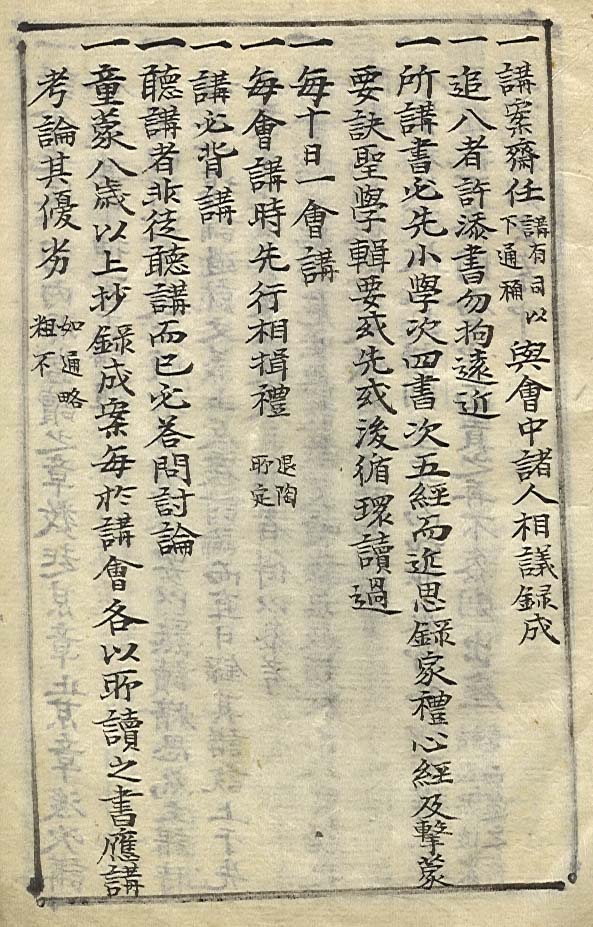 一講案齋任講有司以下通稱與會中諸人相議録成
一追入者許添書勿拘遠近
一所講書必先小學次四書次五經而近思録家禮心經及擊蒙
要訣聖學輯要或先或後循環讀過
一每十日一會講
一每會講時先行相揖禮退陶所定
一講必背講
一聽講者非徒聽講而已必答問討論
一童蒙八歲以上抄録成案每於講會各以所讀之書應講
考論其優劣如通略粗不